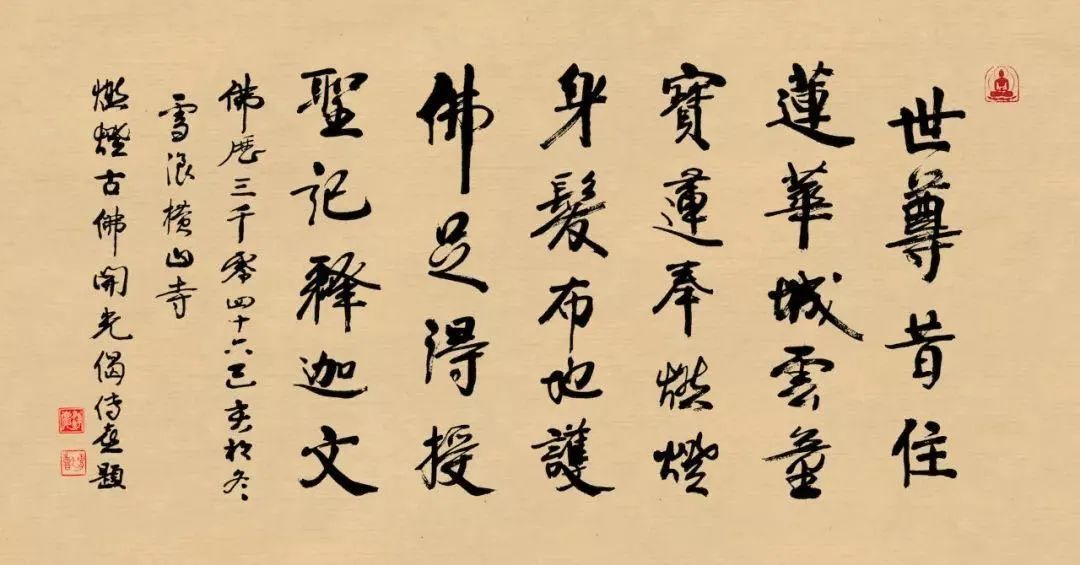 世尊昔住
蓮華城雲童
寶蓮奉燃燈
身髮布地護
佛足得授
聖記释迦文
佛歷三千零四十六己亥初冬
雪浪橫山寺
燃燈古佛開光偈傳喜題